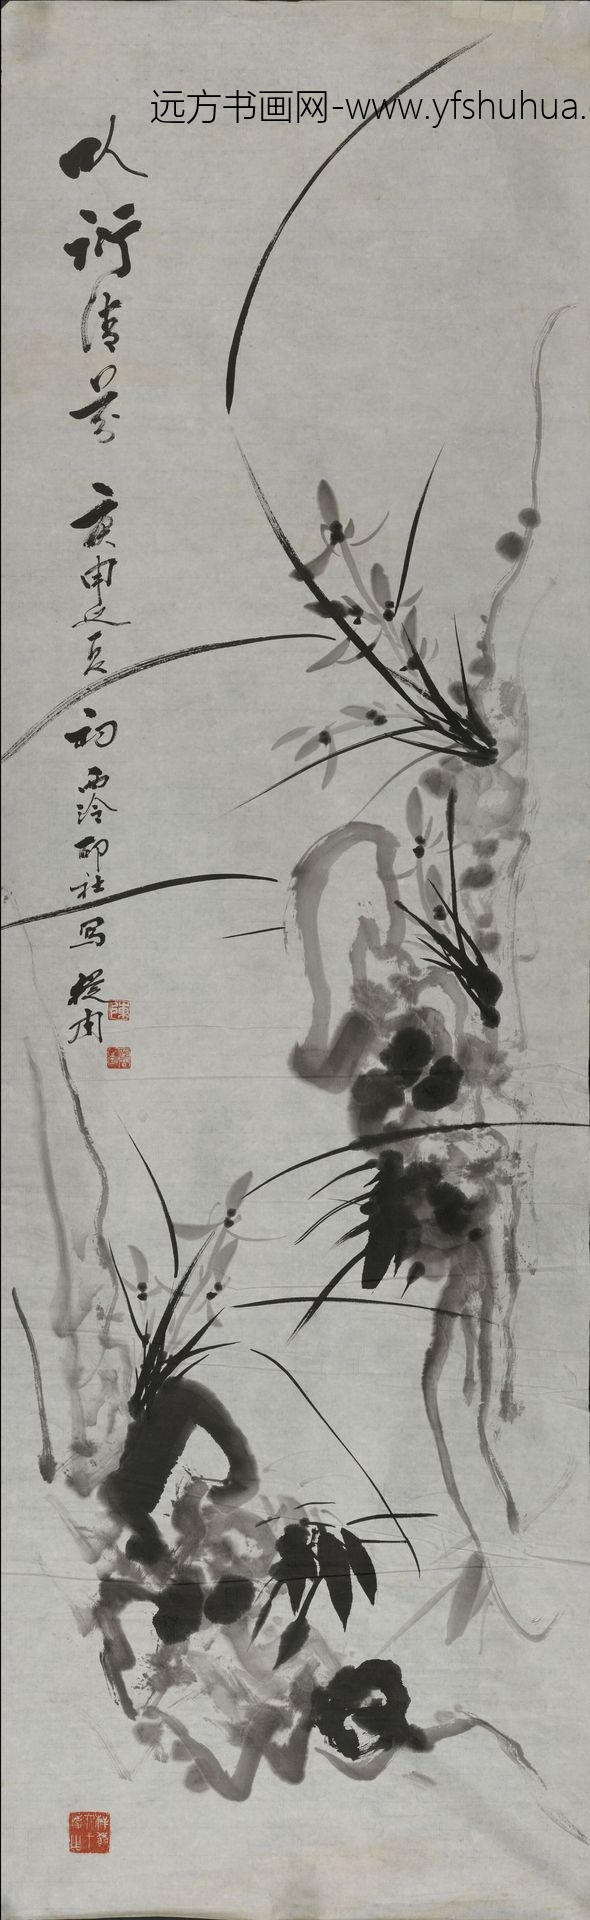 远方书画网-www.yfshuhua.
以衍清芬 庚申之夏初 西泠印社写 从周
陈